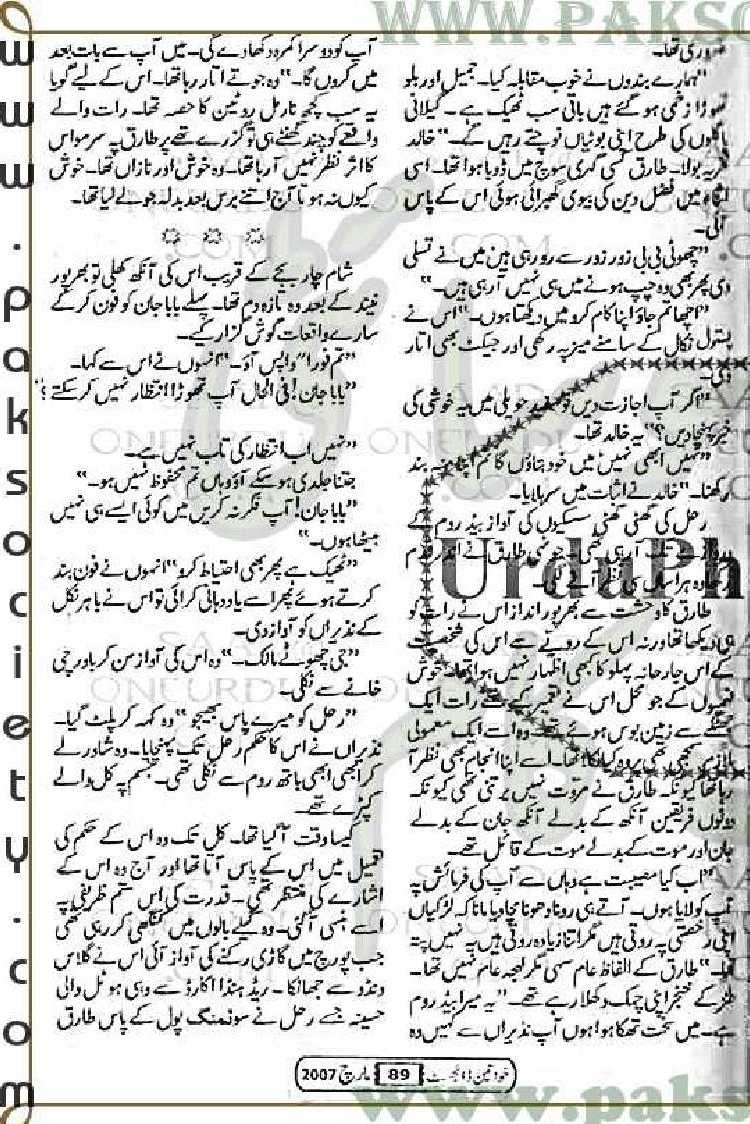 WWW.PAKSO
www.paksociety.com
ضروری تھا۔
"ہمارے بندوں نے خوب مقابلہ کیا۔ جمیل اور بلو
تھوڑا زخمی ہو گئے ہیں باقی سب ٹھیک ہے۔ گیلانی
پاگلوں کی طرح اپنی بوٹیاں نوچتے رہیں گے۔" خالد
فخریہ بولا۔ طارق کسی گہری سوچ میں ڈوبا ہوا تھا۔ اسی
اثناء میں فضل دین کی بیوی گھبرائی ہوئی اس کے پاس
آئی۔
"چھوٹی بی بی زور زور سے رو رہی ہیں میں نے تسلی
دی پھر بھی وہ چپ ہونے میں ہی نہیں آ رہی ہیں۔"
"اچھا تم جاؤ اپنا کام کرو میں دیکھتا ہوں۔" اس نے
پستول نکال کے سامنے میز پہ رکھی اور جیکٹ بھی اتار
دی۔
"اگر آپ اجازت دیں تو سفید حویلی میں یہ خوشی کی
خبر پہنچا دیں؟" یہ خالد تھا۔
"نہیں ابھی نہیں میں خود بتاؤں گا تم اپنا منہ بند
رکھنا۔" خالد نے اثبات میں سر ہلایا۔
رعل کی گھٹی گھٹی سسکیوں کی آواز بیڈ روم کے
تک آ رہی تھی۔ جونہی طارق نے اندر قدم
وہ ہراساں سی نظر آنے لگی۔
طارق کا وحشت سے بھرپور انداز اس نے رات کو
ہی دیکھا تھا ورنہ اس کے رویے سے اس کی شخصیت
کے اس جارحانہ پہلو کا بھی اظہار نہیں ہوا تھا۔ خوش
فہمیوں کے جو محل اس نے تعمیر کیے تھے رات ایک
جھٹکے سے زمین بوس ہوئے تھے۔ وہ اب ایک معمولی
تھا۔ اسے اپنا انجام بھی نظر آ
رہا تھا کیونکہ طارق نے مروت نہیں برتنی تھی کیونکہ
دونوں فریقین آنکھ کے بدلے آنکھ جان کے بدلے
جان اور موت کے بدلے موت کے قائل تھے۔
"اب کیا مصیبت ہے وہاں سے آپ کی فرمائش پہ
آپ کو لایا ہوں۔ آتے ہی رونا دھونا مچا دیا مانا کہ لڑکیاں
اپنی رخصتی پہ روتی ہیں مگر اتنا زیادہ روتی ہیں یہ نہیں پتہ
تھا۔" طارق کے الفاظ عام سہی مگر لہجہ عام نہیں تھا۔
طنز کے خنجر اپنی چمک دکھلا رہے تھے۔ "یہ میرا بیڈ روم
ہے۔ میں سخت تھکا ہوا ہوں آپ نذیراں سے کہیں وہ
آپ کو دوسرا کمرہ دکھا دے گی۔ میں آپ سے بات بعد
میں کروں گا۔" وہ جوتے اتار رہا تھا۔ اس کے لیے گویا
یہ سب کچھ نارمل روٹین کا حصہ تھا۔ رات والے
واقعے کو چند گھنٹے ہی تو گزرے تھے پر طارق پہ سرمو اس
کا اثر نظر نہیں آ رہا تھا۔ وہ خوش اور نازاں تھا۔ خوش
کیوں نہ ہوتا آج اتنے برس بعد بدلہ جو لے لیا تھا۔
☼ ☼ ☼
شام چار بجے کے قریب اس کی آنکھ کھلی تو بھرپور
نیند کے بعد وہ تازہ دم تھا۔ پہلے بابا جان کو فون کر کے
سارے واقعات گوش گزار کیے۔
"تم فورا" واپس آؤ۔" انہوں نے اس سے کہا۔
"بابا جان! فی الحال آپ تھوڑا انتظار نہیں کر سکتے؟"
"نہیں اب انتظار کی تاب نہیں ہے۔
جتنا جلدی ہو سکے آؤ وہاں تم محفوظ نہیں ہو۔"
"بابا جان! آپ فکر نہ کریں میں کوئی ایسے ہی نہیں
بیٹھا ہوں۔"
"ٹھیک ہے پھر بھی احتیاط کرو" انہوں نے فون بند
کرتے ہوئے پھر اسے یاد دہانی کرائی تو اس نے باہر نکل
کے نذیراں کو آواز دی۔
"جی چھوٹے مالک۔" وہ اس کی آواز سن کر باورچی
خانے سے نکلی۔
"رعل کو میرے پاس بھیجو" وہ کہہ کر پلٹ گیا۔
نذیراں نے اس کا حکم رعل تک پہنچایا۔ وہ شاور لے
کر ابھی ابھی باتھ روم سے نکلی تھی۔ جسم پہ کل والے
کپڑے تھے۔
کیسا وقت آ گیا تھا۔ کل تک وہ اس کے حکم کی
تعمیل میں اس کے پاس آتا تھا اور آج وہ اس کے
اشارے کی منتظر تھی۔ قدرت کی اس ستم ظریفی پہ
اسے ہنسی آ گئی۔ وہ گیلے بالوں میں کنگھی کر رہی تھی
جب پورچ میں گاڑی رکنے کی آواز آئی اس نے گلاس
ونڈو سے جھانکا۔ ریڈ ہنڈا اکارڈ سے وہی ہوٹل والی
حسینہ جسے رعل نے سوئمنگ پول کے پاس طارق
UrduPh
خواتین ڈائجسٹ 89 مارچ 2007
www.paks